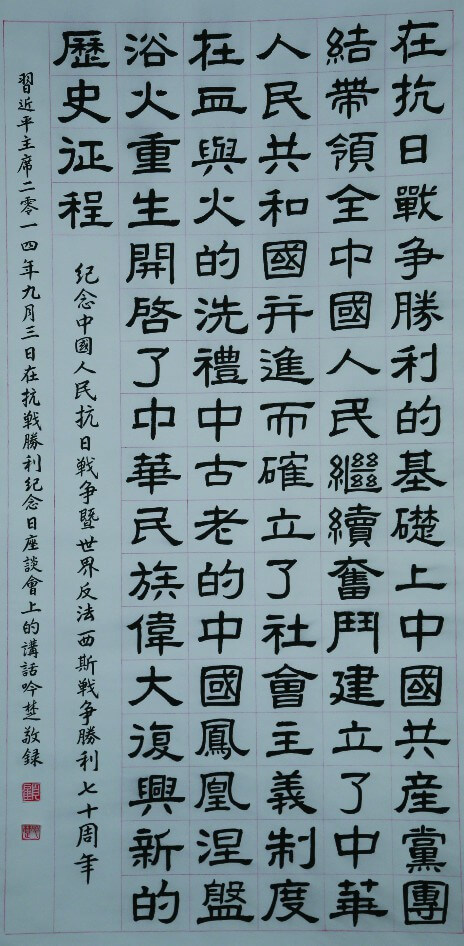 在抗日戰争勝利的基礎上中國共産黨團
結帶領全中國人民繼續奮鬥建立了中華
人民共和國并進而確立了社會主義制度
在血與火的洗禮中古老的中國鳳凰涅盤
浴火重生開啓了中華民族偉大復興新的
歷史征程
紀念中國人民抗日戰争暨世界反法西斯戰争勝利七十周年
習近平主席二零一四年九月三日在抗戰勝利紀念日座談會上的講話吟楚敬録